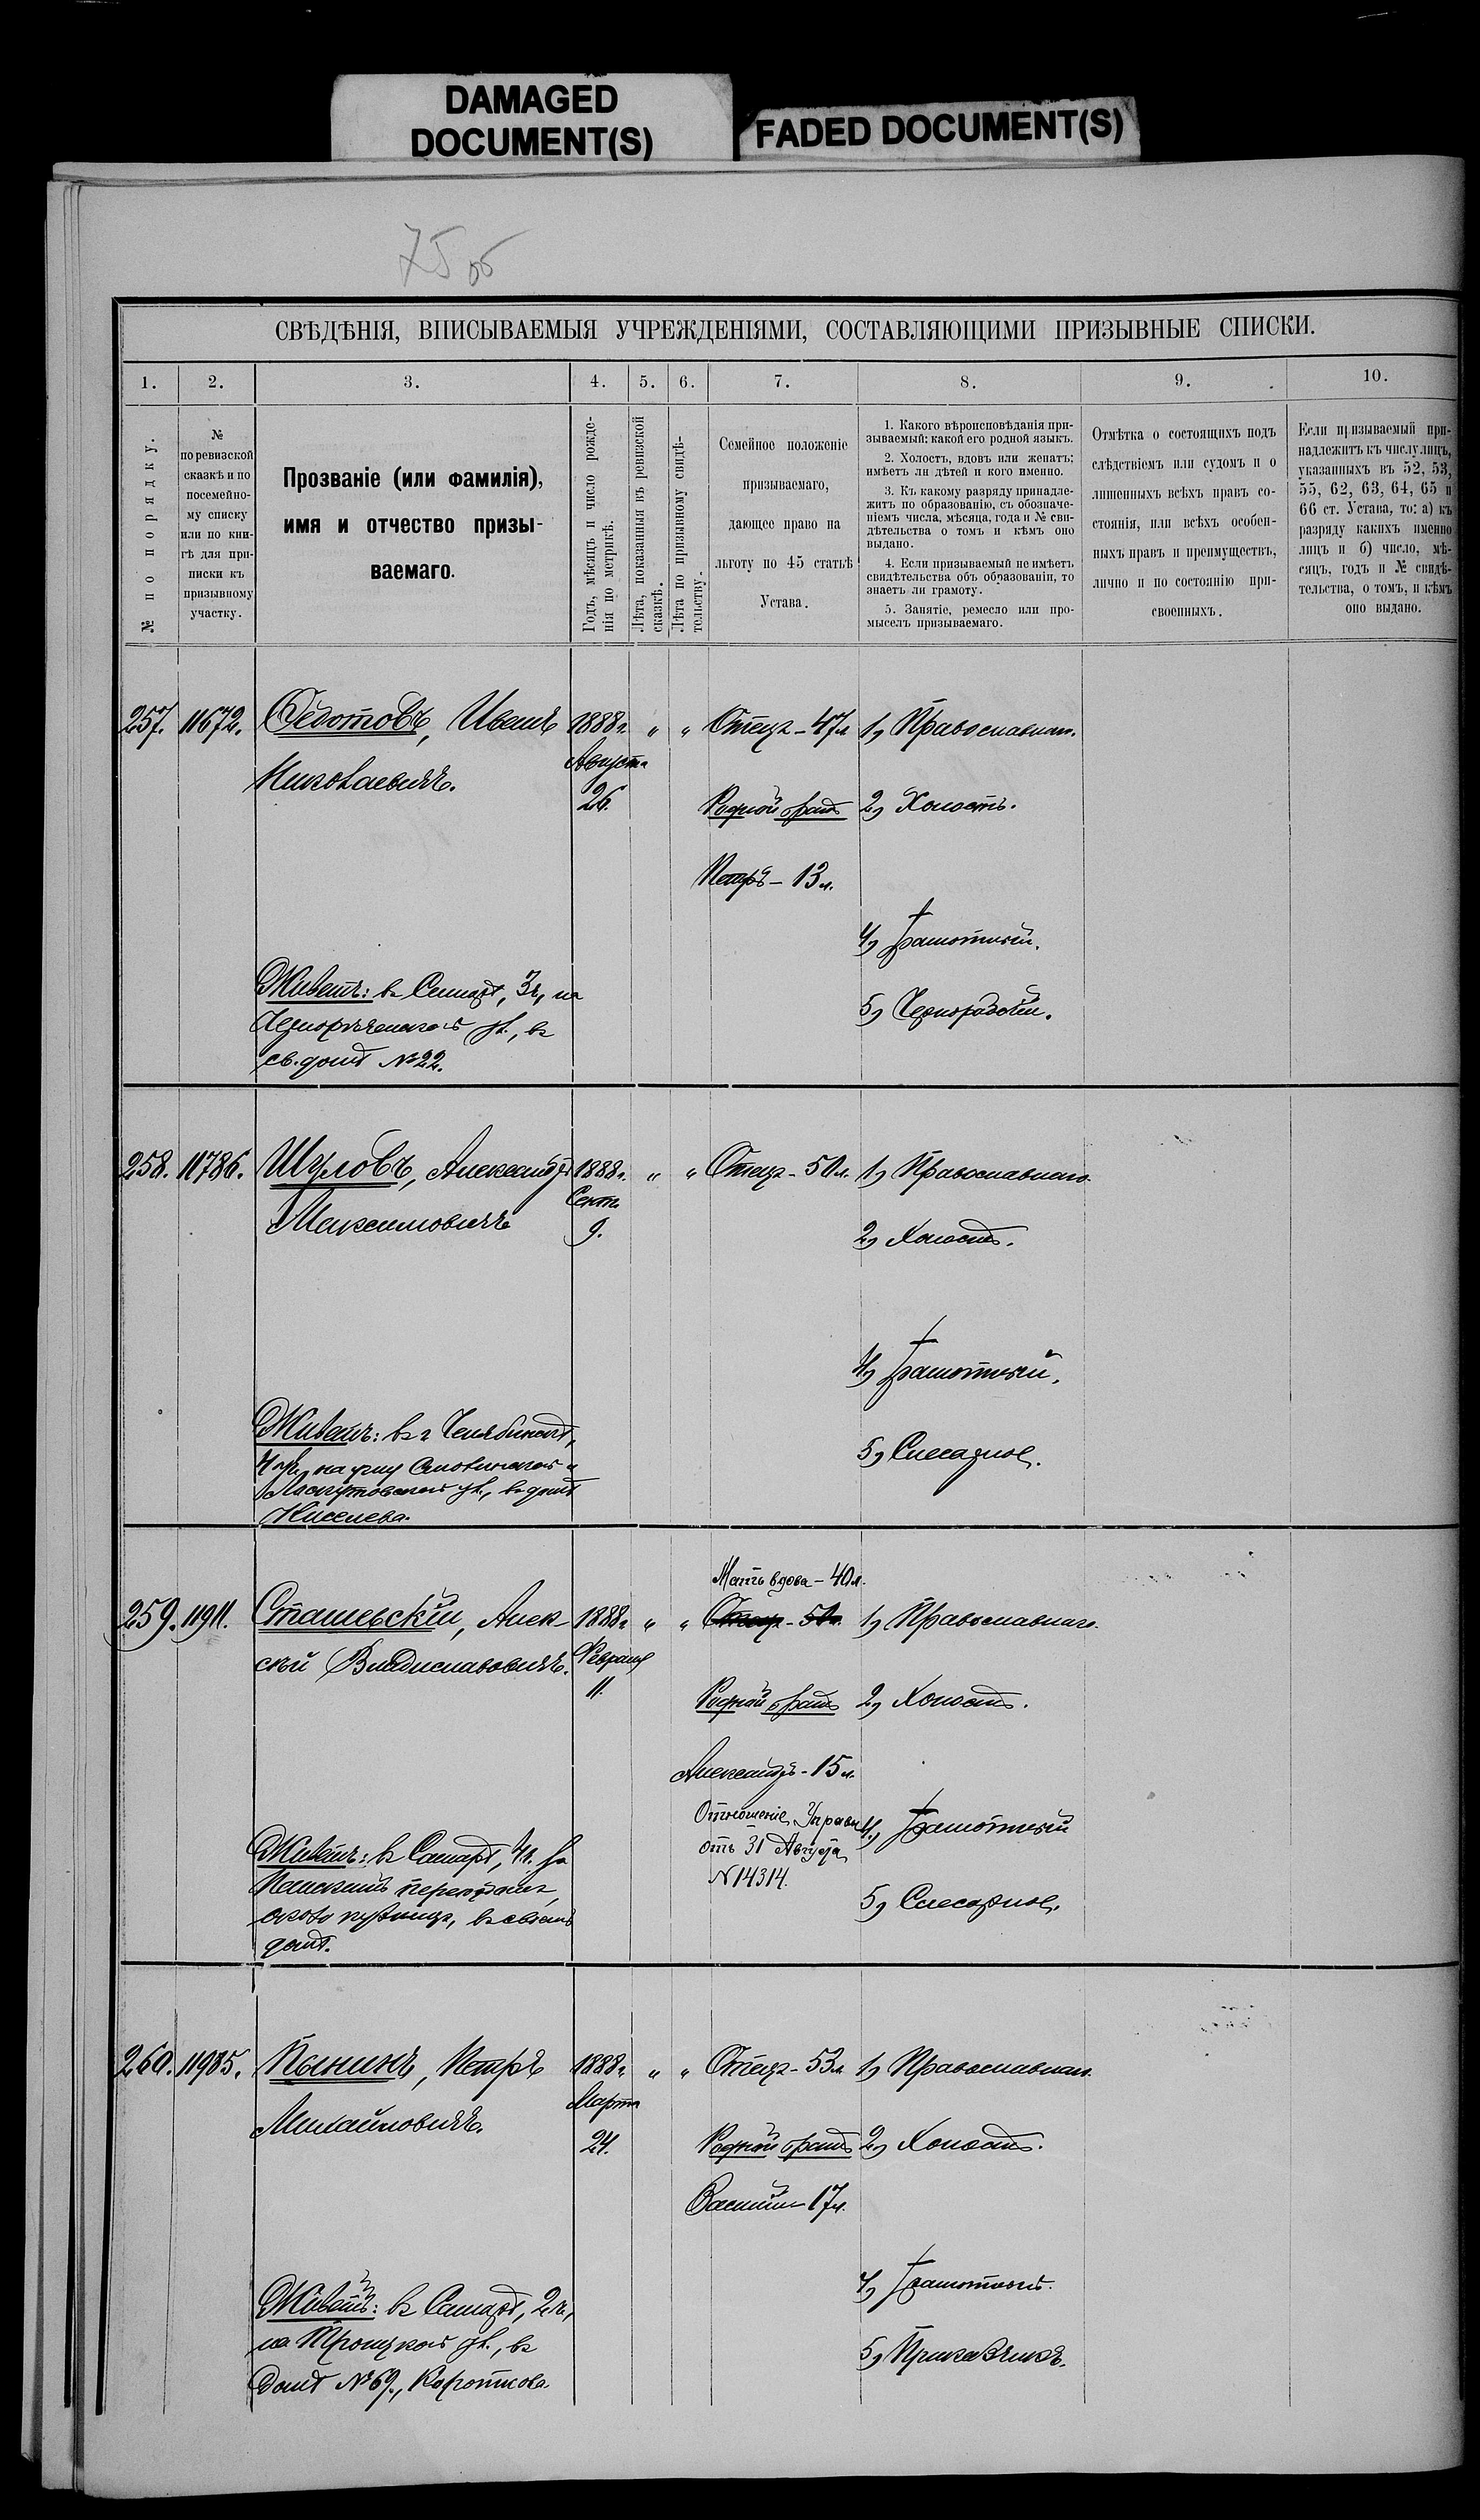 DAMAGED
DOCUMENT(S)
FADED DOCUMENT(S)
75 об
СВѢДѢНІЯ, ВПИСЫВАЕМЫЯ УЧРЕЖДЕНІЯМИ, СОСТАВЛЯЮЩИМИ ПРИЗЫВНЫЕ СПИСКИ.
1. 2. 3. 4. 5. 6. 7. 8. 9. 10.
№ по порядку.
№
по ревизской
сказкѣ и по
посемейно-
му списку
или по кни-
гѣ для при-
писки къ
призывному
участку.
Прозваніе (или фамилія),
имя и отчество призы-
ваемаго.
Годъ, мѣсяцъ и число рожде-
нія по метрикѣ.
Лѣта, показанныя въ ревизской
сказкѣ.
Лѣта по призывному свидѣ-
тельству.
Семейное положеніе
призываемаго,
дающее право на
льготу по 45 статьѣ
Устава.
1. Какого вѣроисповѣданія при-
зываемый: какой его родной языкъ.
2. Холостъ, вдовъ или женатъ:
имѣетъ ли дѣтей и кого именно.
3. Къ какому разряду принадле-
житъ по образованію, съ обозначе-
ніемъ числа, мѣсяца, года и № сви-
дѣтельства о томъ и кѣмъ оно
выдано.
4. Если призываемый не имѣетъ
свидѣтельства объ образованіи, то
знаетъ ли грамоту.
5. Занятіе, ремесло или про-
мыселъ призываемаго.
Отмѣтка о состоящихъ подъ
слѣдствіемъ или судомъ и о
лишенныхъ всѣхъ правъ со-
стоянія, или всѣхъ особен-
ныхъ правъ и преимуществъ,
лично и по состоянію при-
своенныхъ.
Если призываемый при-
надлежитъ къ числу лицъ,
указанныхъ въ 52, 53,
55, 62, 63, 64, 65 и
66 ст. Устава, то: а) къ
разряду какихъ именно
лицъ и б) число, мѣ-
сяцъ, годъ и № свидѣ-
тельства, о томъ, и кѣмъ
оно выдано.
257. 11672. Ѳедотовъ, Иванъ 1888г. " " Отецъ - 47л. 1) Православнаго.
Николаевичъ. Августа
26. Родной братъ 2) Холостъ.
Петръ - 13л.
4) Грамотный.
Живетъ: въ Самарѣ, 3ч, на 5) Чернорабочій.
Чернорѣченской ул., въ
св. домѣ №22.
258. 11786. Шуловъ, Александръ 1888г. " " Отецъ - 50л. 1) Православнаго.
Максимовичъ Сент.
9. 2) Холостъ.
4) Грамотный.
Живетъ: въ г Челябинскѣ, 5) Слесарное.
на углу
ул., въ домѣ
Киселева.
Мать вдова - 40л.
259. 11911. Сташевскій, Алек- 1888г. " " Отецъ 1) Православнаго.
сѣй Владиславовичъ. Февраля
11. Родной братъ 2) Холостъ.
Александръ - 15л.
Отношеніе Управы 4) Грамотный
отъ 31 Августа
N 14314.
5) Слесарное.
Живетъ: въ Самарѣ, 4ч. за
около кузницъ, въ своемъ
домѣ.
260. 11985. Пынинъ, Петръ 1888г. " " Отецъ - 53л 1) Православнаго.
Михайловичъ. Марта
24. Родной братъ 2) Холостъ.
Василій - 17л.
4) Грамотный.
Живетъ: въ Самарѣ, 2ч,
на Троицкой ул., въ 5) Приказчикъ.
домѣ №69, Короткова.